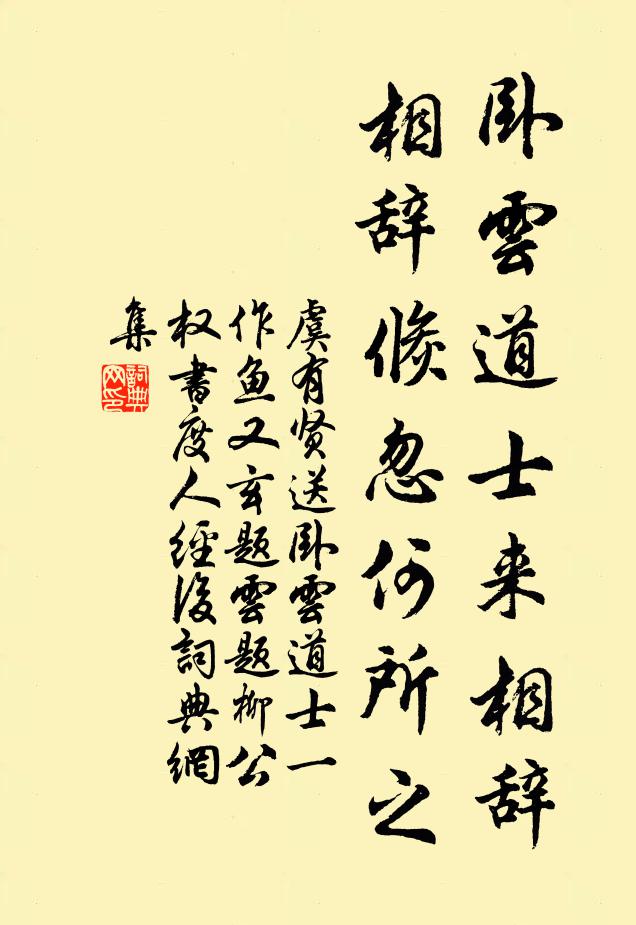 卧雲道士来相辞
相辞倏忽何所之
虞有贤送卧雲道士一
作鱼又玄题雲题柳公
权書度人經後詞典網
集
詞典
网印